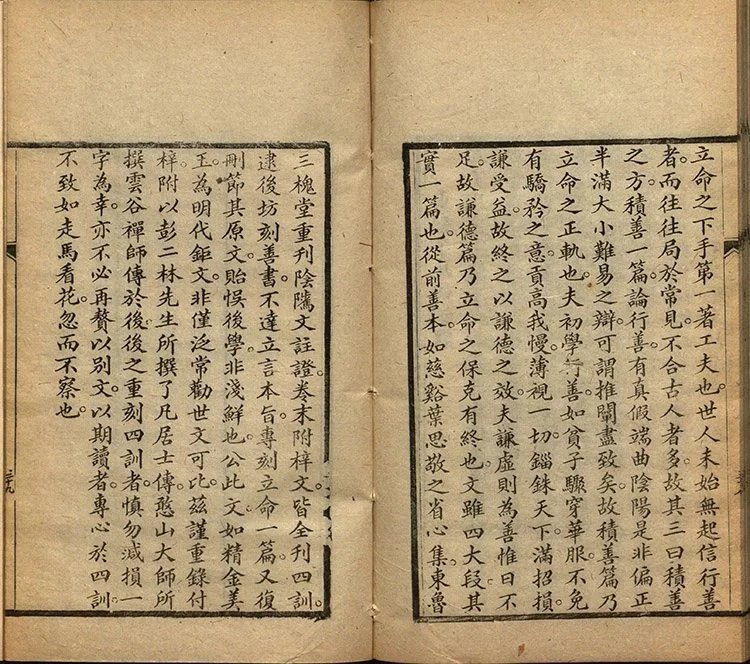 立命之下手第一著工夫也。世人未始無起信行善
者。而往往局於常見。不合古人者多。故其三曰積善
之方。積善一篇。論行善有真假端曲陰陽是非偏正
半滿大小難易之辯。可謂推闡盡致矣。故積善篇乃
立命之正軌也。夫初學行善。如貧子驟穿華服。不免
有驕矜之意。貢高我慢。薄視一切。錙銖天下。滿招損
謙受益。故終之以謙德之效。夫謙虛則為善惟日不
足。故謙德篇乃立命之保克有終也。文雖四大段。其
實一篇也。從前善本。如慈谿葉思敬之省心集。東魯
三槐堂重刊陰騭文註證。卷末附梓文。皆全刊四訓。
逮後坊刻善書。不達立言本旨。專刻立命一篇。又復
刪節其原文。貽悞後學。非淺鮮也。公此文如精金美
玉。為明代鉅文。非僅泛常勸世文可比。茲謹重錄付
梓。附以彭二林先生所撰了凡居士傳。憨山大師所
撰雲谷禪師傳於後。後之重刻四訓者。慎勿減損一
字為幸。亦不必再贅以別文。以期讀者專心於四訓。
不致如走馬看花。忽而不察也。